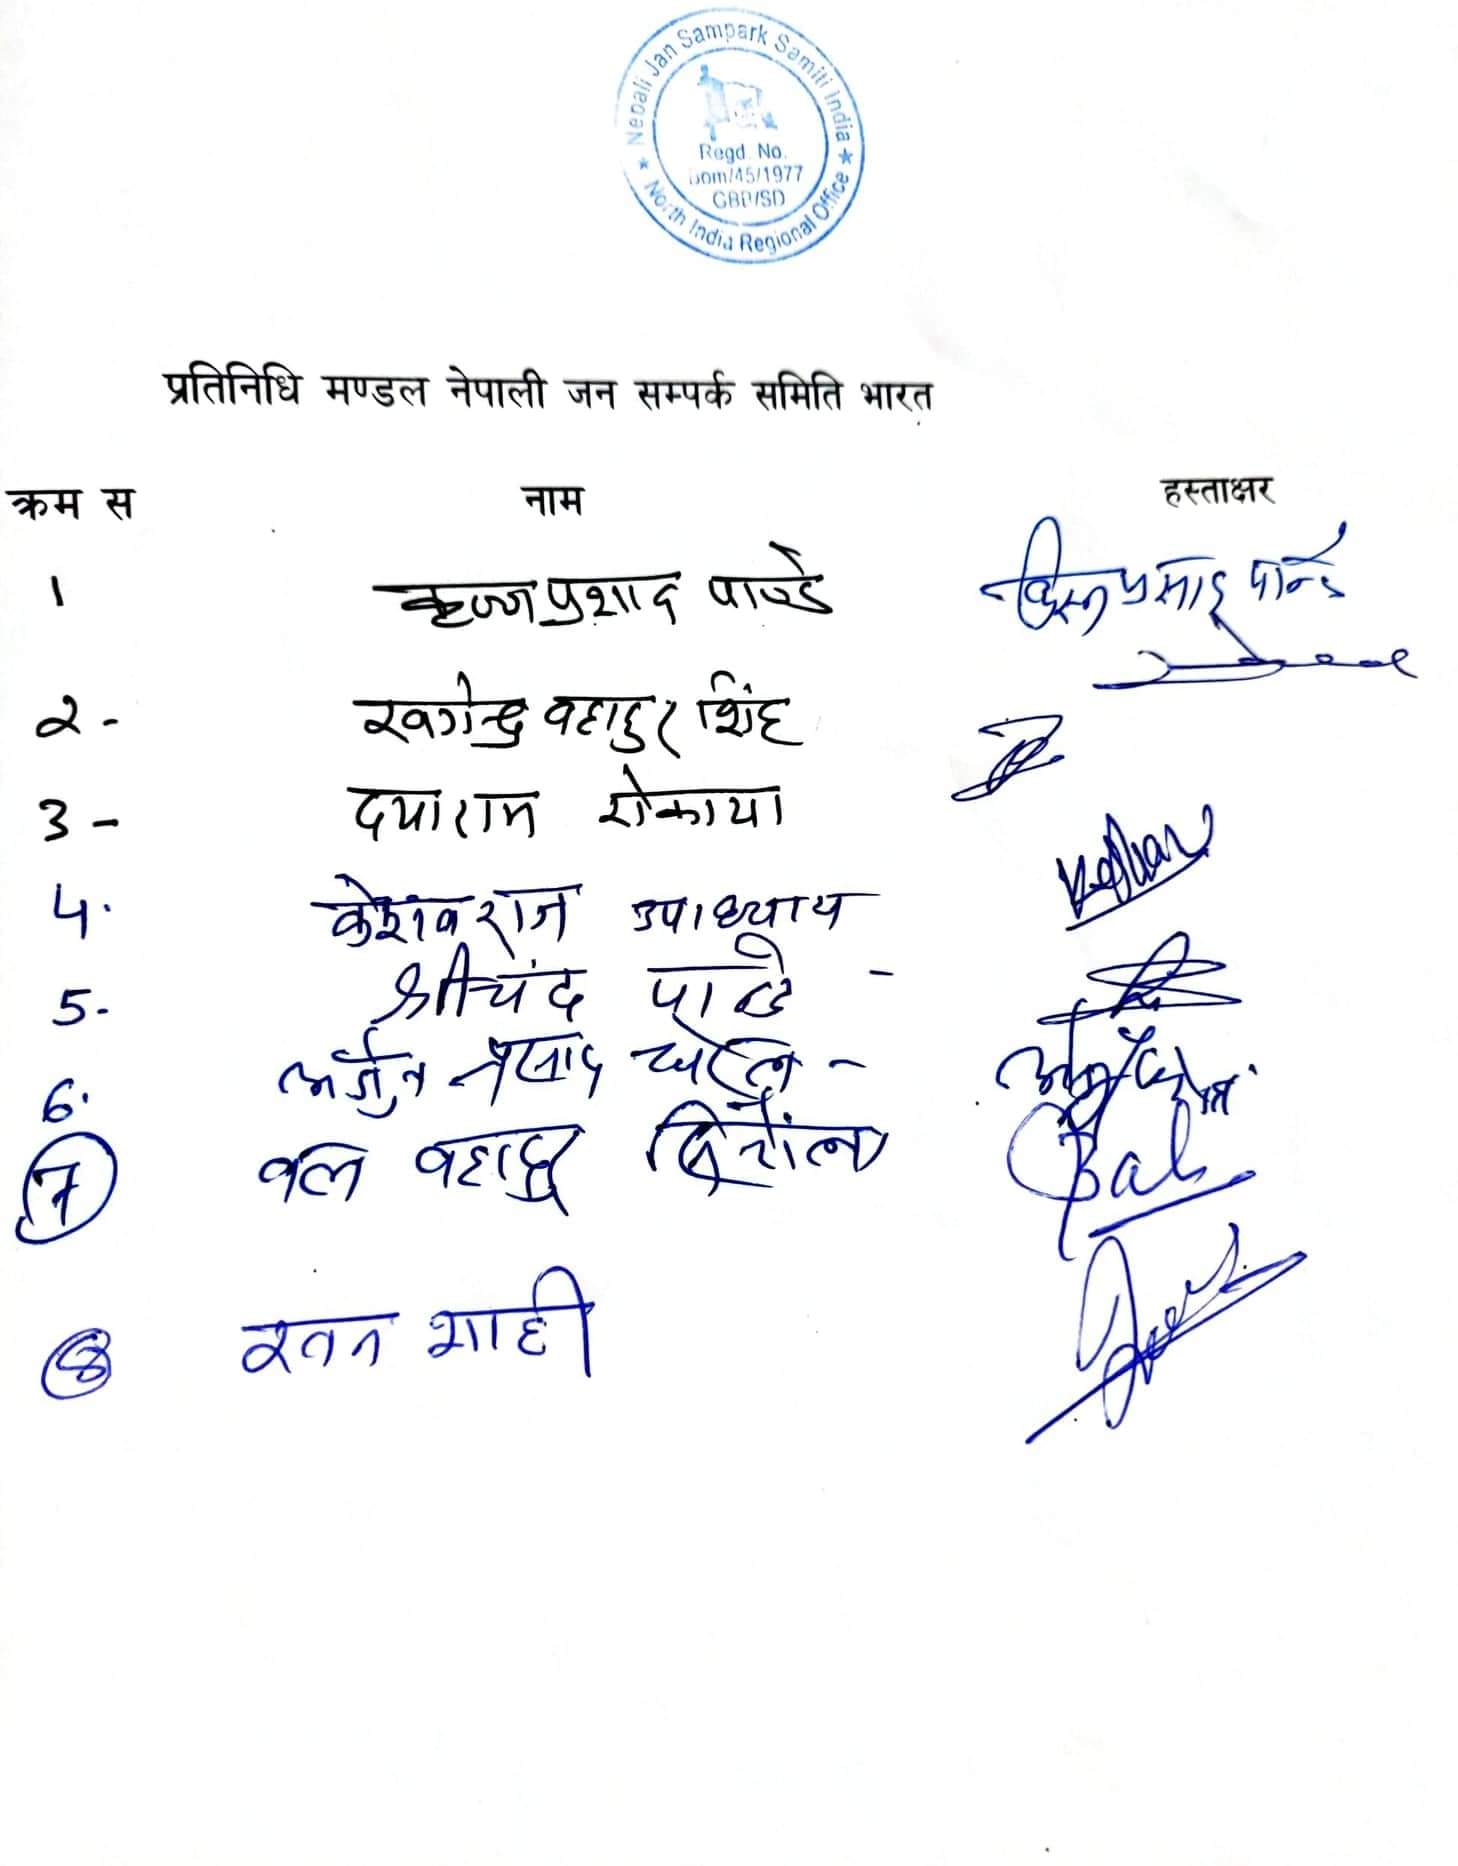 Nepali Jan Sampark Samiti India
Regd. No.
bom/45/1977
GBP/SD
★ North India Regional Office ★
प्रतिनिधि मण्डल नेपाली जन सम्पर्क समिति भारत
क्रम स नाम हस्ताक्षर
1 प्रशाद पाण्डे
2- खगेन्द्र वहादुर सिंह
3- दयाराम रोकाया
4. केशवराज उपाध्याय Keshav
5. श्रीचंद पाण्डे -
6. अर्जुन प्रसाद -
7 वल वहादुर Bal
8 रतन शाही